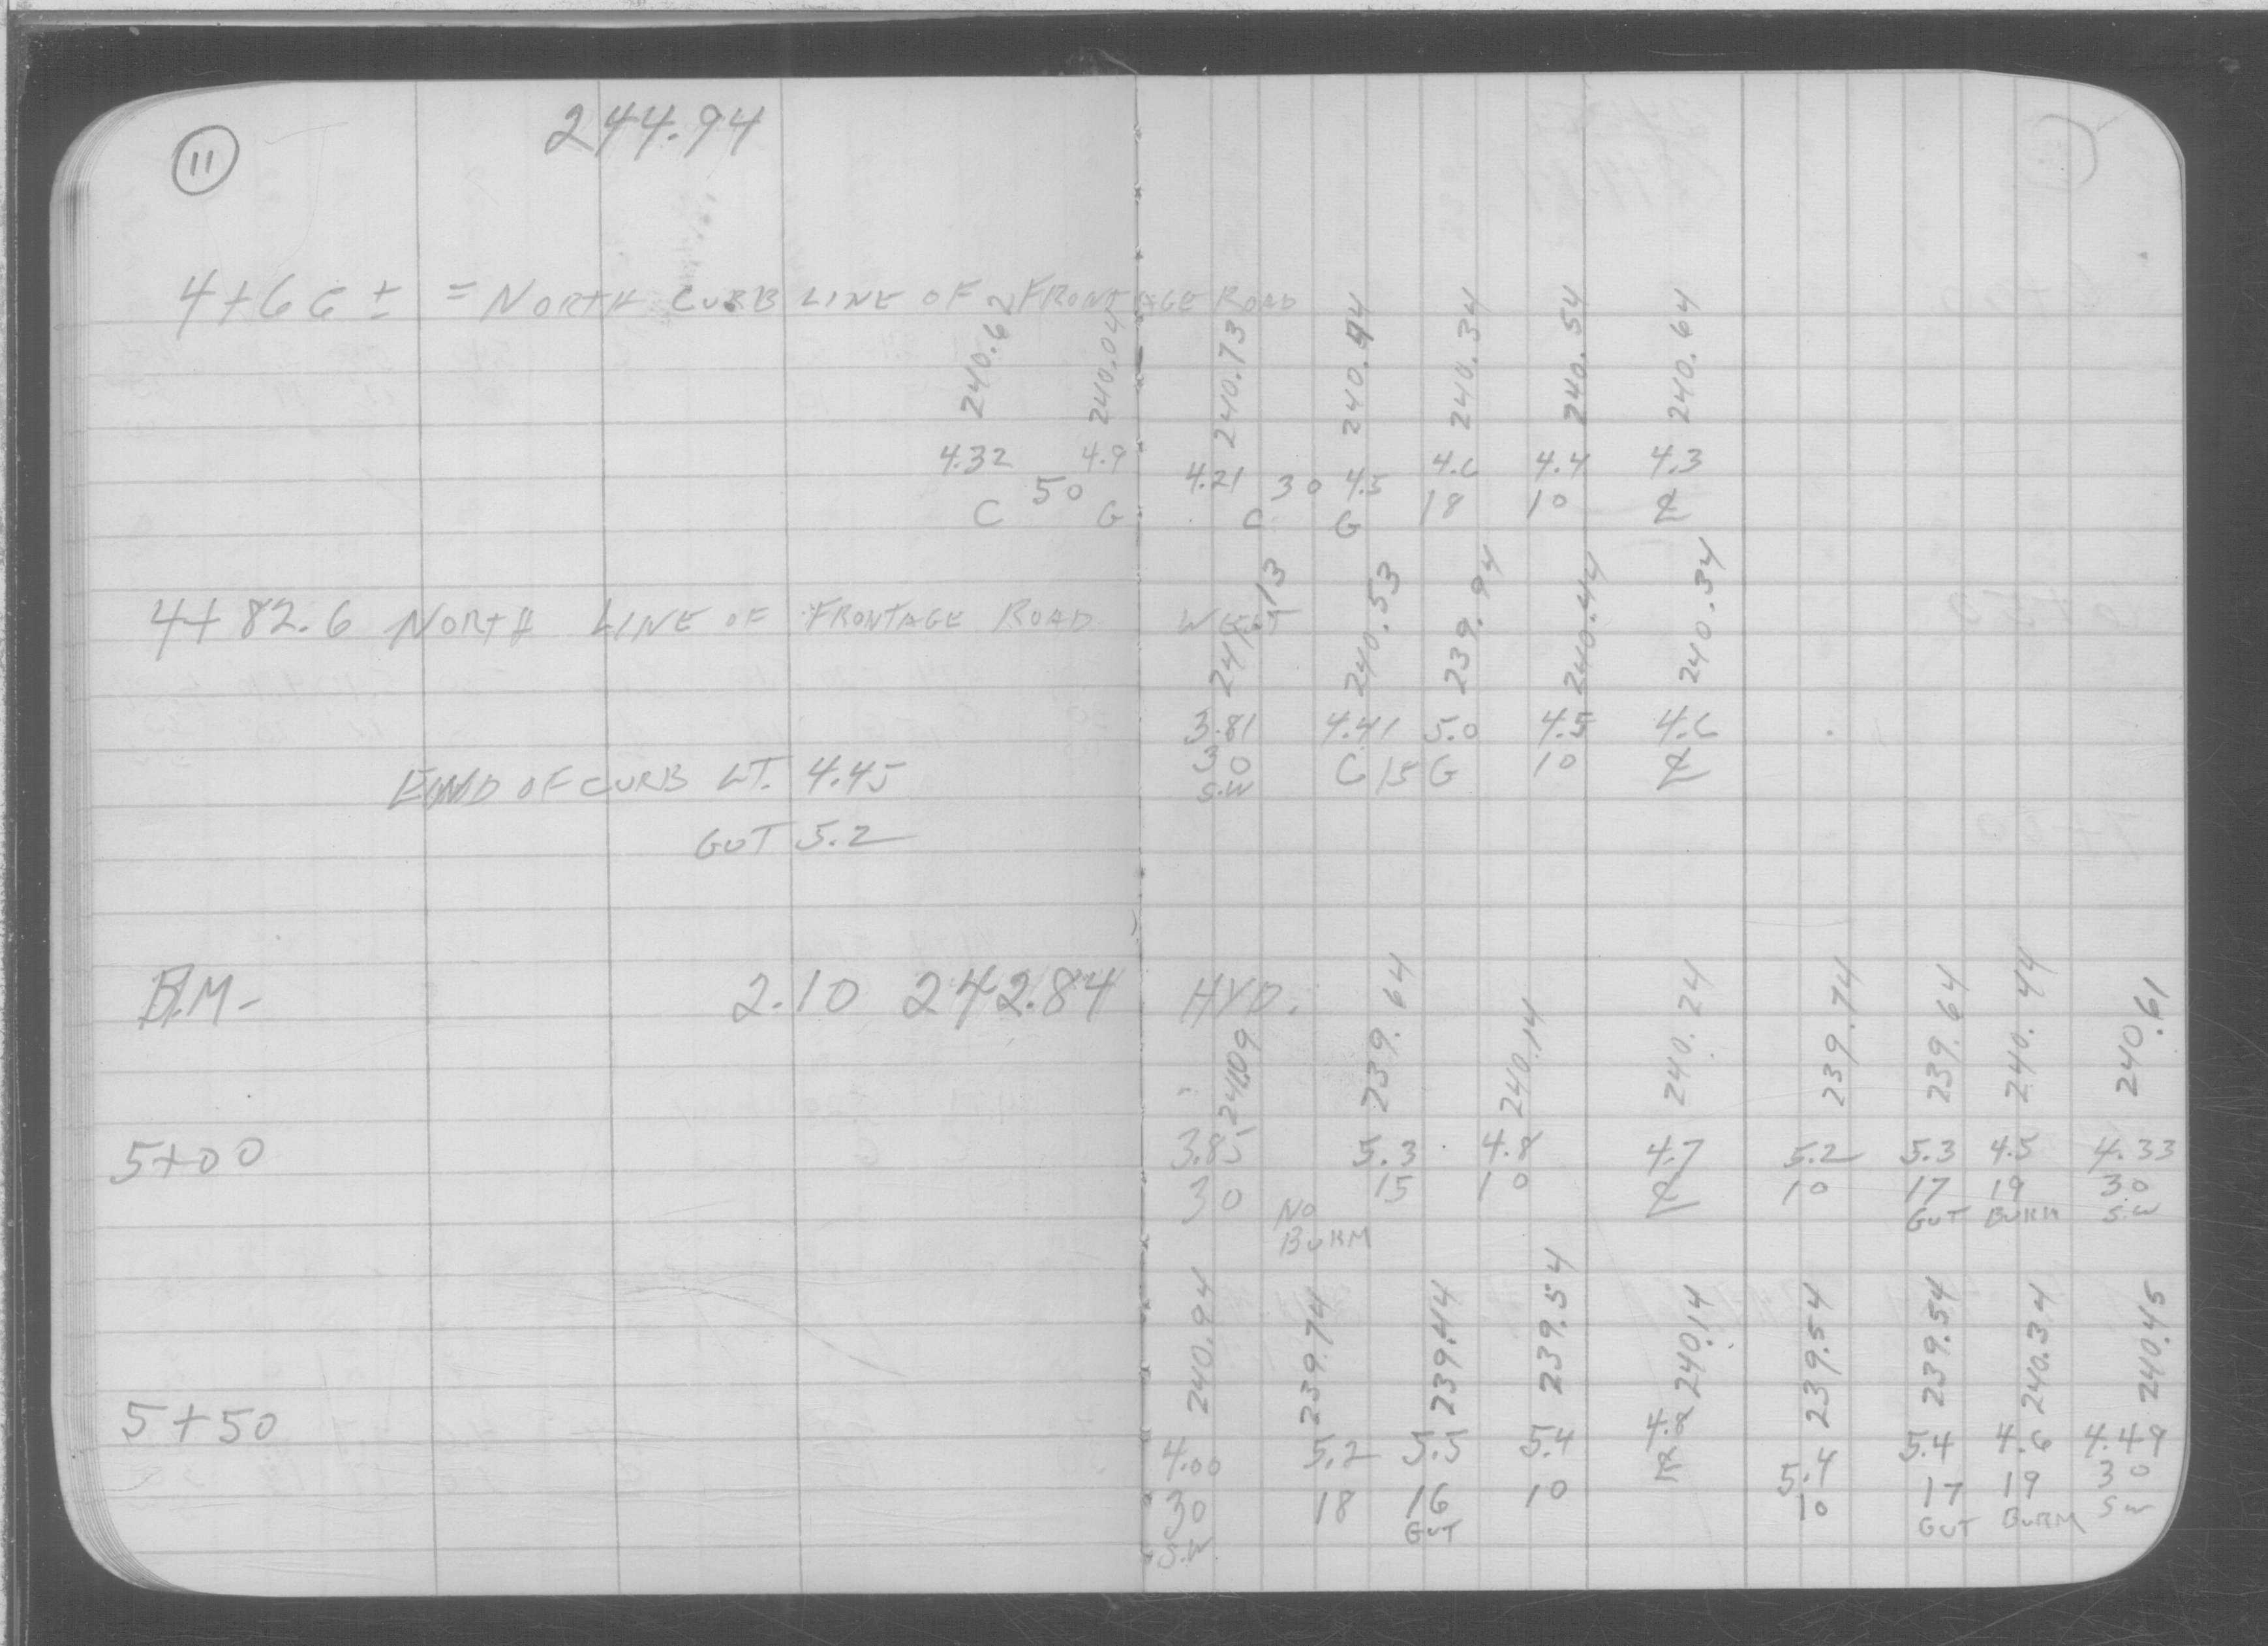 11
244.94
4+66 ± = NORTH CURB LINE OF FRONTAGE ROAD
240.62 240.04 240.73 240.44 240.34 240.54 240.64
4.32 4.9 4.21 30 4.5 4.6 4.4 4.3
C 50 G C G 18 10 ℄
4+82.6 NORTH LINE OF FRONTAGE ROAD WEST
241.13 240.53 239.94 240.44 240.34
3.81 4.41 5.0 4.5 4.6
30 C 15 G 10 ℄
S.W
END OF CURB LT. 4.45
GUT 5.2
B.M- 2.10 242.84 HYD.
241.09 239.64 240.14 240.24 239.74 239.64 240.44 240.61
5+00 3.85 5.3 4.8 4.7 5.2 5.3 4.5 4.33
30 15 10 ℄ 10 17 19 30
NO BURM GUT BURM S.W
240.94 239.74 239.44 239.54 240.14 239.54 239.54 240.34 240.45
5+50 4.00 5.2 5.5 5.4 4.8 5.4 5.4 4.6 4.49
30 18 16 10 ℄ 10 17 19 30
S.W GUT GUT BURM SW